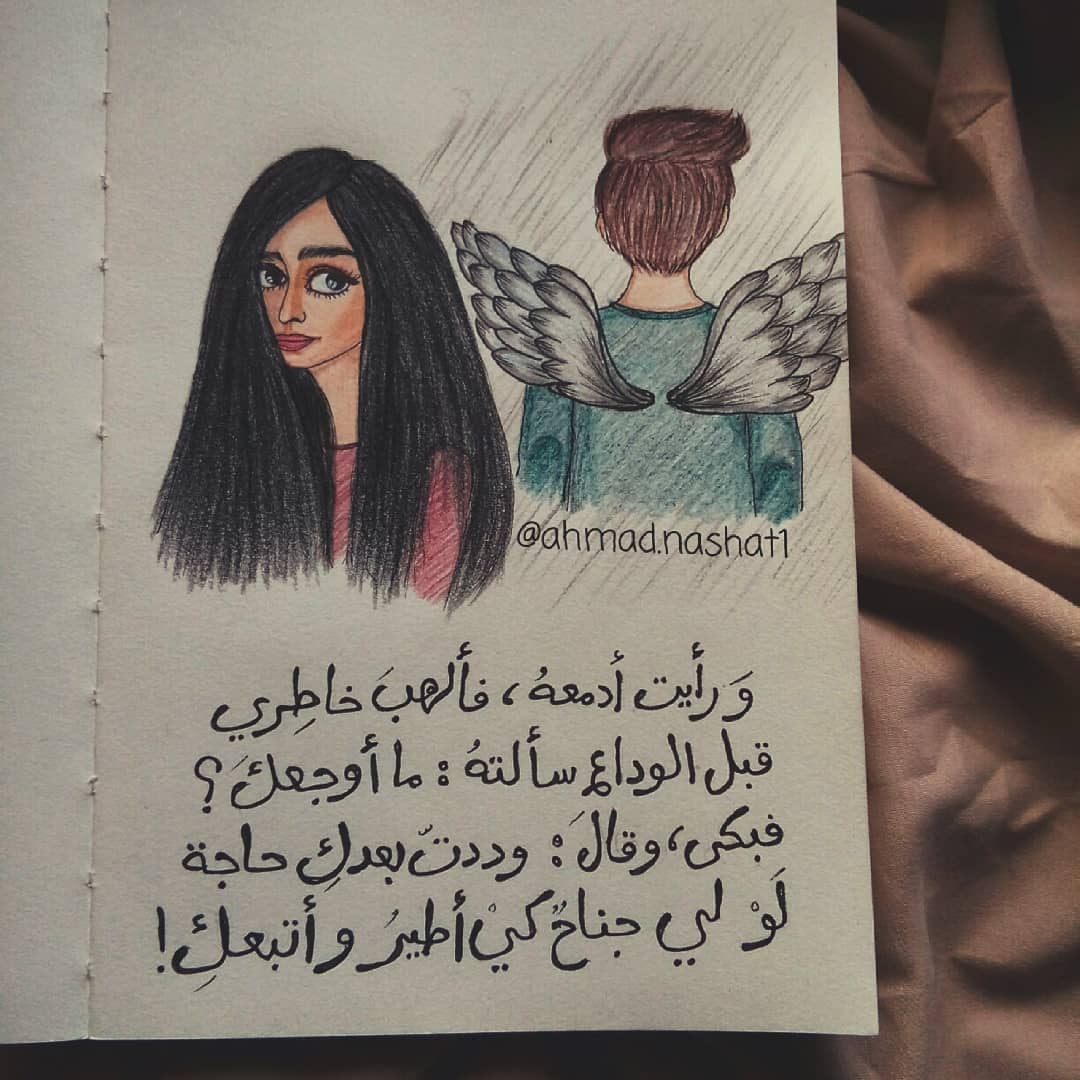 @ahmad.nashat1
وَ رأيت أدمعهُ ، فألهبَ خاطِري
قبل الوداع سألتهُ : ما أوجعكَ ؟
فبكى ، وقالَ : وددتّ بعدكِ حاجة
لَوْ لي جناحٌ كيْ أطيرُ وأتبعكِ !